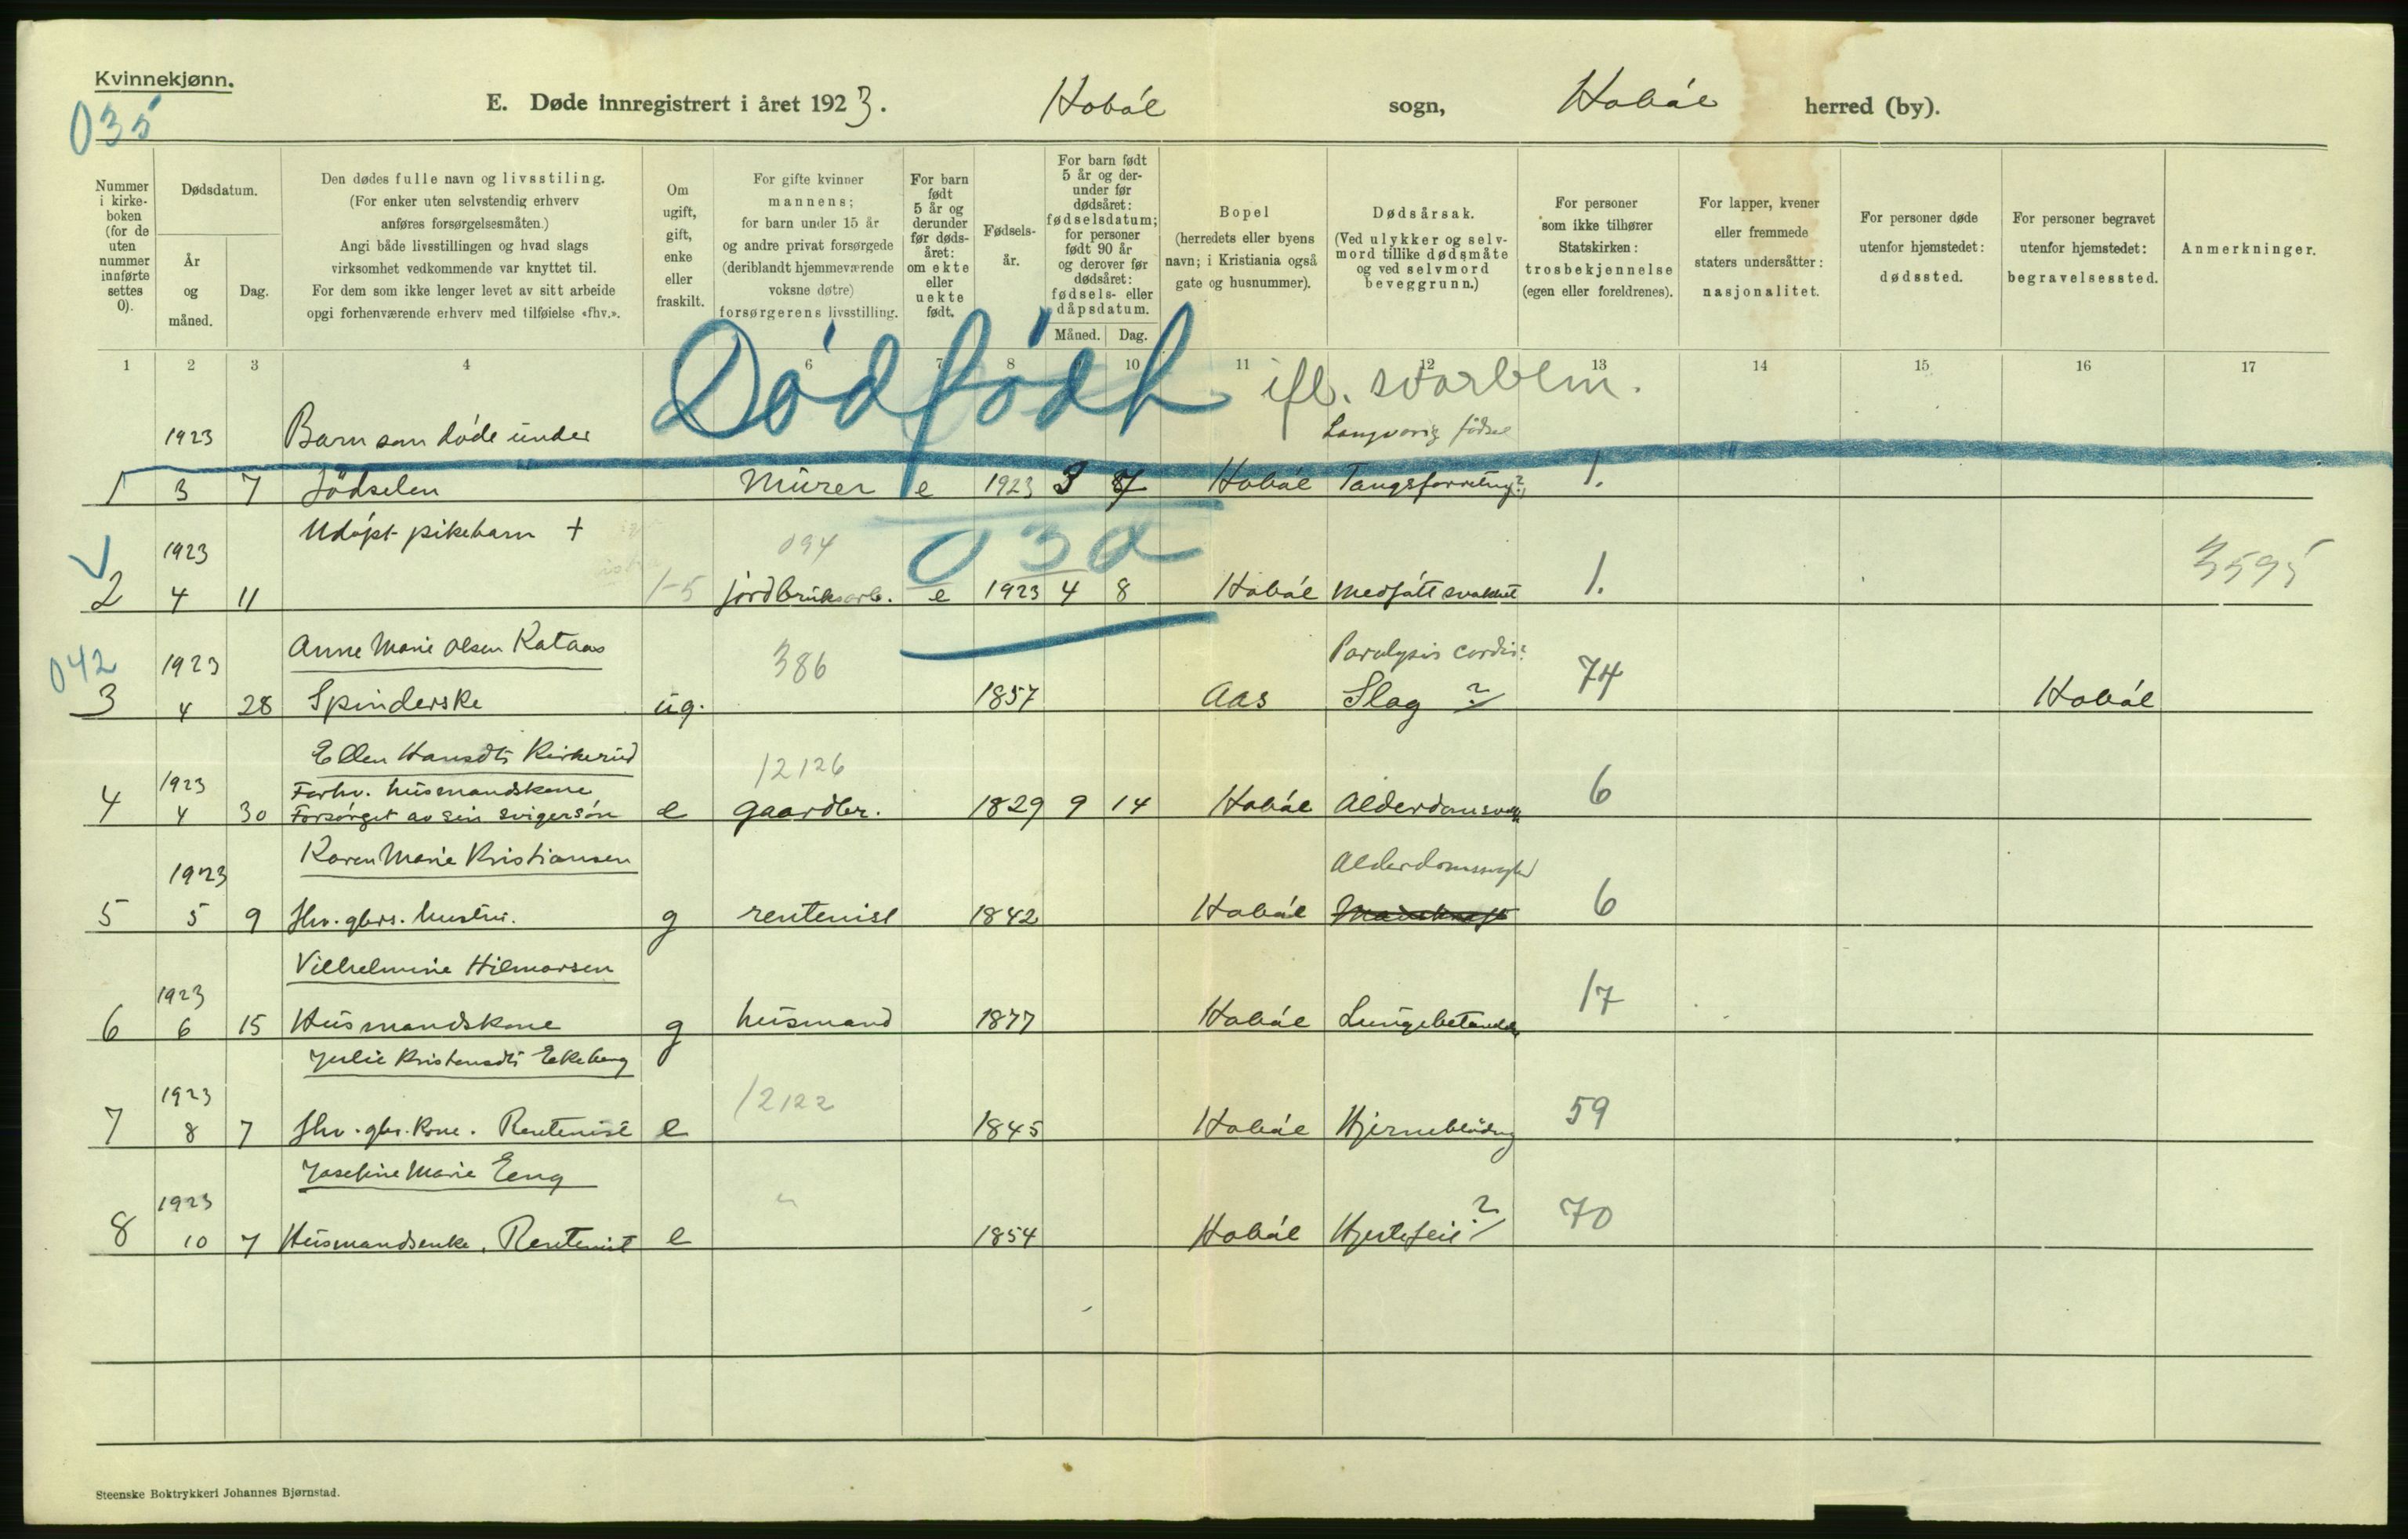 Kvinnekjønn.
035
E. Døde innregistrert i året 1923. Hobøl sogn, Hobøl herred (by).
Nummer i kirke-boken (for de uten nummer innførte settes 0).
Dødsdatum.
År og måned.
Dag.
Den dødes fulle navn og livsstiling.
(For enker uten selvstendig erhverv
anføres forsørgelsesmåten.)
Angi både livsstillingen og hvad slags
virksomhet vedkommende var knyttet til.
For dem som ikke lenger levet av sitt arbeide
opgi forhenværende erhverv med tilføielse «fhv.».
Om ugift, gift, enke eller fraskilt.
For gifte kvinner
mannens;
for barn under 15 år
og andre privat forsørgede
(deriblandt hjemmeværende
voksne døtre)
forsørgerens livsstilling.
For barn født 5 år og derunder før døds-året: om ekte eller uekte født.
Fødsels-år.
For barn født
5 år og der-
under før
dødsåret:
fødselsdatum;
for personer
født 90 år
og derover før
dødsåret:
fødsels- eller
dåpsdatum.
Måned. Dag.
Bopel
(herredets eller byens
navn; i Kristiania også
gate og husnummer).
Dødsårsak.
(Ved ulykker og selv-
mord tillike dødsmåte
og ved selvmord
beveggrunn.)
For personer
som ikke tilhører
Statskirken:
trosbekjennelse
(egen eller foreldrenes).
For lapper, kvener
eller fremmede
staters undersåtter:
nasjonalitet.
For personer døde
utenfor hjemstedet:
dødssted.
For personer begravet
utenfor hjemstedet:
begravelsessted.
Anmerkninger.
1 2 3 4 6 7 8 10 11 12 13 14 15 16 17
Dødfødt ifl. svarblm.
1923 Barn som døde under Langvarig fødsel
1 3 7 fødselen Murer e 1923 3 7 Hobøl Tangsforretng? 1.
1923 Udøpt pikebarn + 094 032 3595
2 4 11 1-5 jordbruksarb. e 1923 4 8 Hobøl Medfått svakhet 1.
042 1923 Anne Marie Olsen Kataas 386 Paralysis cordis? 74
3 4 28 Spinderske ug. 1857 Aas Slag ? Hobøl
Ellen Hansdtr Kirkerud 12126
1923 Forhv. husmandskone 6
4 4 30 Forsørget av sin svigersøn e gaardbr. 1829 9 14 Hobøl Alderdomsvakh
Karen Marie Kristiansen Alderdomssvakh
1923 6
5 5 9 fhv. gbrs. hustru. g rentenist 1842 Hobøl
Vilhelmine Hilmarsen
1923 17
6 6 15 Husmandskone g husmand 1877 Hobøl Lungebetændelse
Julie Kristensdtr Ekeberg
1923 12122 59
7 8 7 fhv. gbr. kone. Rentenist e 1845 Hobøl Hjerneblødng
Josefine Marie Eeng
1923 " 70
8 10 7 Husmandsenke. Rentenist e 1854 Hobøl Hjertefeil ?
Steenske Boktrykkeri Johannes Bjørnstad.